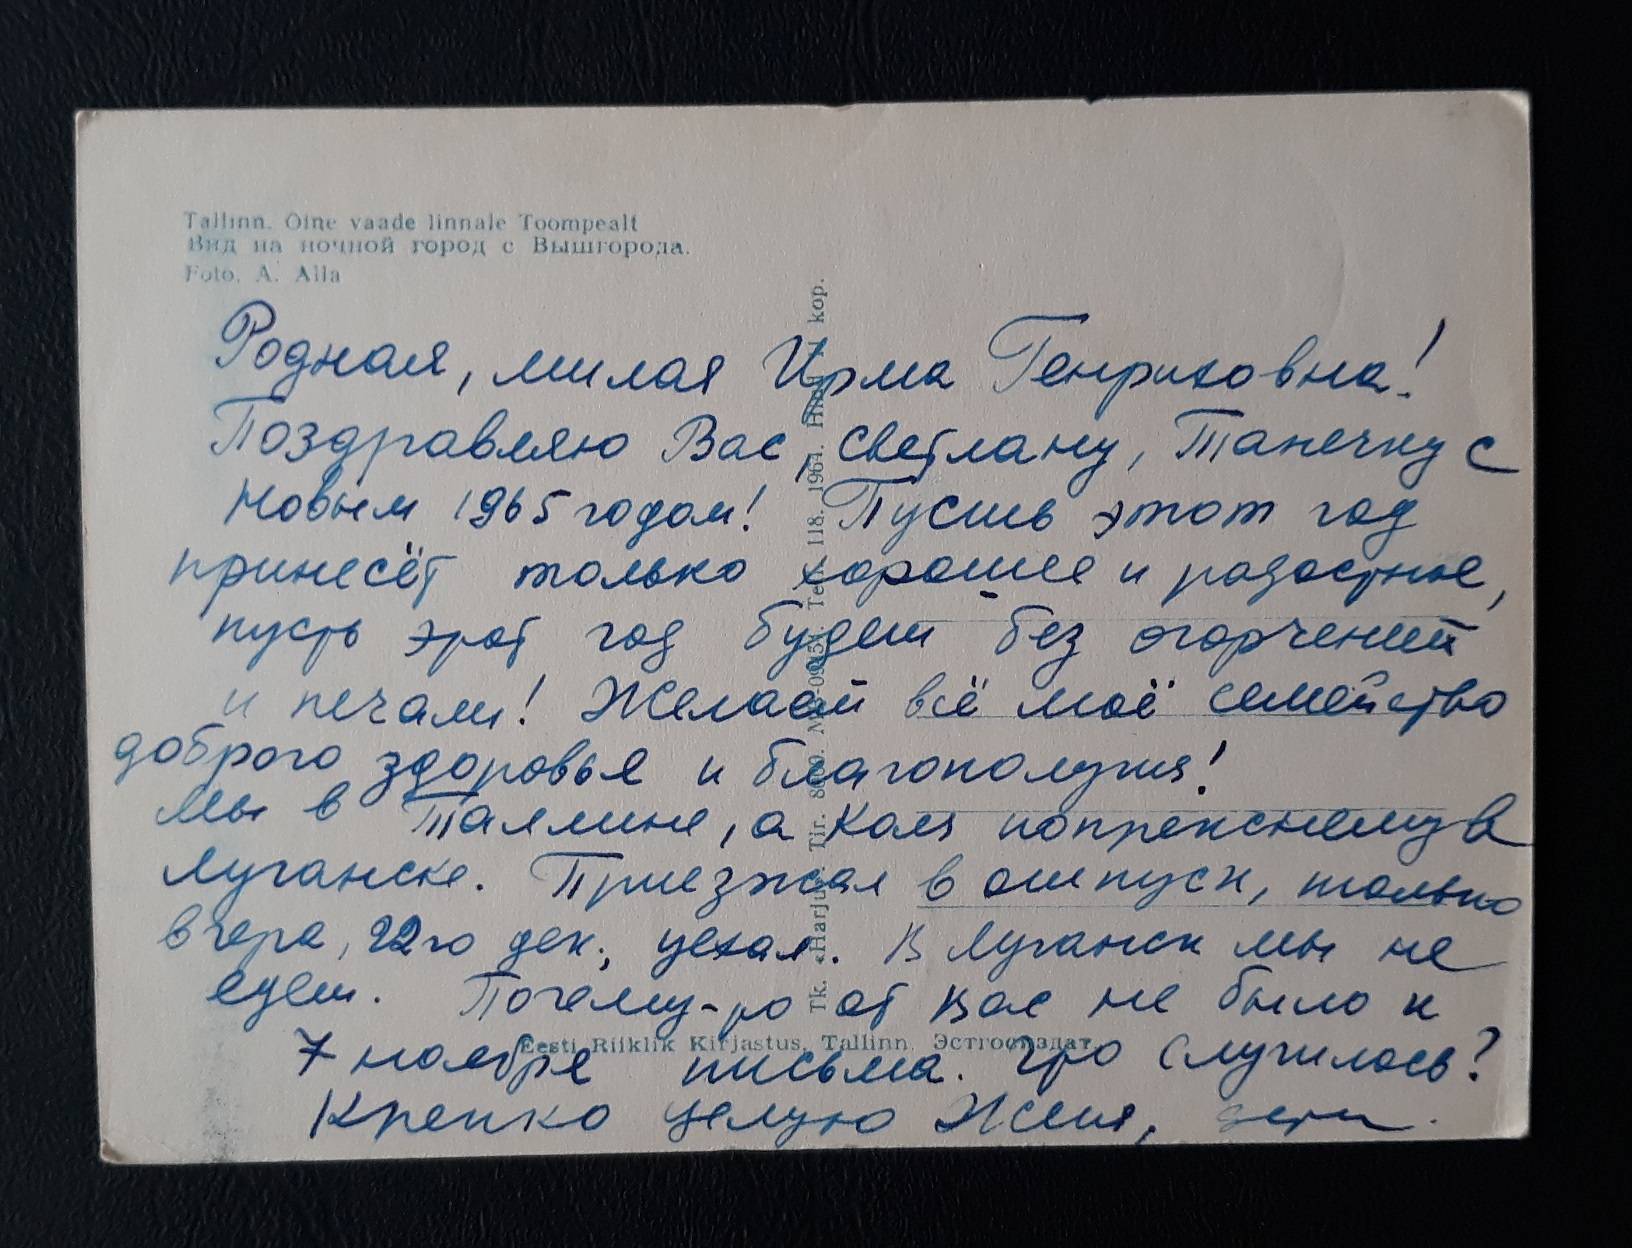 Tallinn. Öine vaade linnale Toompealt
Вид на ночной город с Вышгорода.
Foto. A. Alla
Родная, милая Ирма Генриховна!
Поздравляю Вас, Светлану, Танечку с
Новым 1965 годом! Пусть этот год
принесёт только хорошее и радостное,
пусть этот год будет без огорчений
и печали! Желает всё моё семейство
доброго здоровья и благополучия!
Мы в Таллине, а Коля попрежнему в
Луганске. Приезжал в отпуск, только
вчера, 22го дек., уехал. В Луганск мы не
едем. Почему-то от вас не было к
7 ноября письма. Что случилось?
Крепко целую Женя, дети.
Tk. «Harju». Tir. 118. 1964. kop.
Eesti Riiklik Kirjastus, Tallinn. Эстгосиздат.